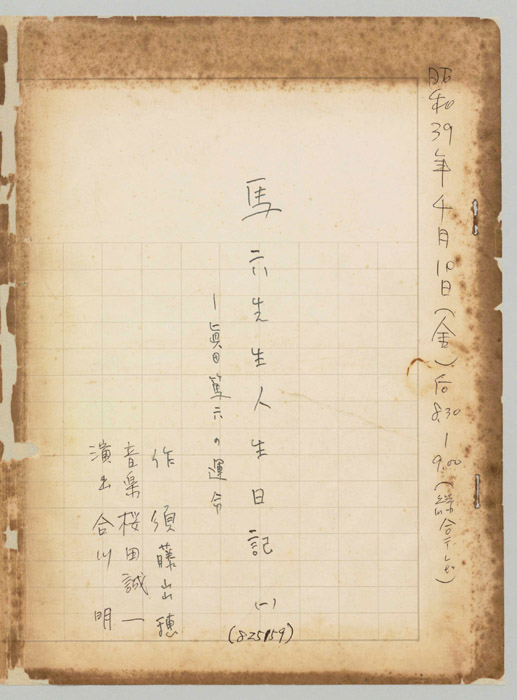 昭和39年4月10日(金)后8.30―9.00(綜合テレビ)
馬六先生人生日記 (一)
(825159)
―眞田馬六の運命
作 須藤出穂
音楽 桜田誠一
演出 合川 明